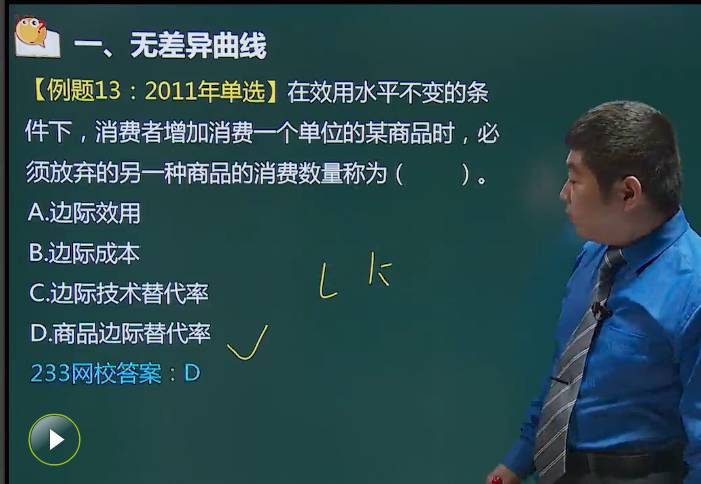 一、无差异曲线
【例题13：2011年单选】在效用水平不变的条
件下，消费者增加消费一个单位的某商品时，必
须放弃的另一种商品的消费数量称为（　　）。
A.边际效用
B.边际成本
C.边际技术替代率
L K
D.商品边际替代率
233网校答案：D